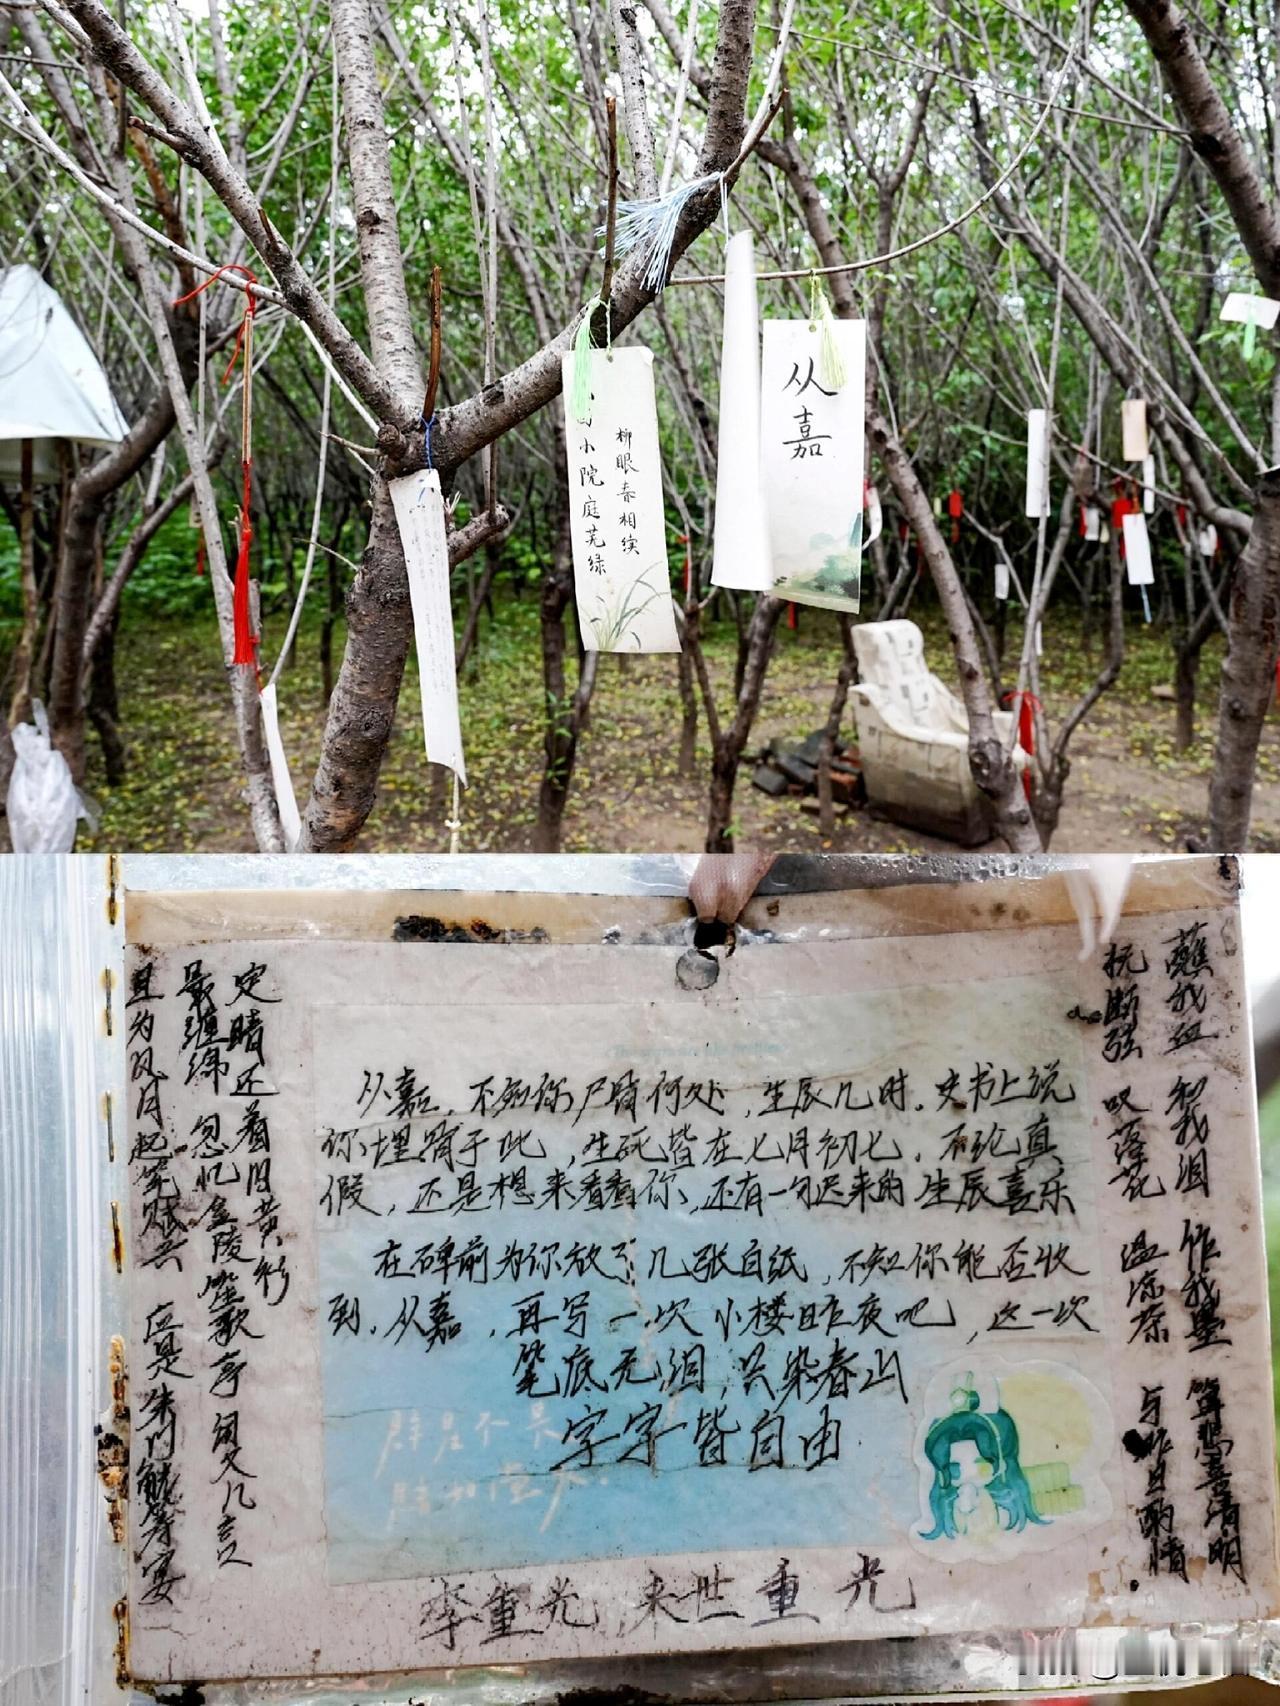 从嘉
柳眼春相续
小院庭芜绿
从嘉，不知你尸骨何处，生辰几时，史书上说
你埋骨于此，生死皆在七月初七，不论真
假，还是想来看看你，还有一句迟来的生辰喜乐
在碑前为你放了几张白纸，不知你能否收
到，从嘉，再写一次小楼昨夜吧，这一次
笔底无泪，只染春山
字字皆自由
李重光 来世重光
蘸我血 和我泪 作我墨 等悲喜清明
抚断弦 叹落花 温凉茶 与昨日酌情
定睛还着旧黄衫
最缠绵 忽忆金陵笙歌亭 闻久几言
且为风月起笔赋兴 应是朱门觥筹宴